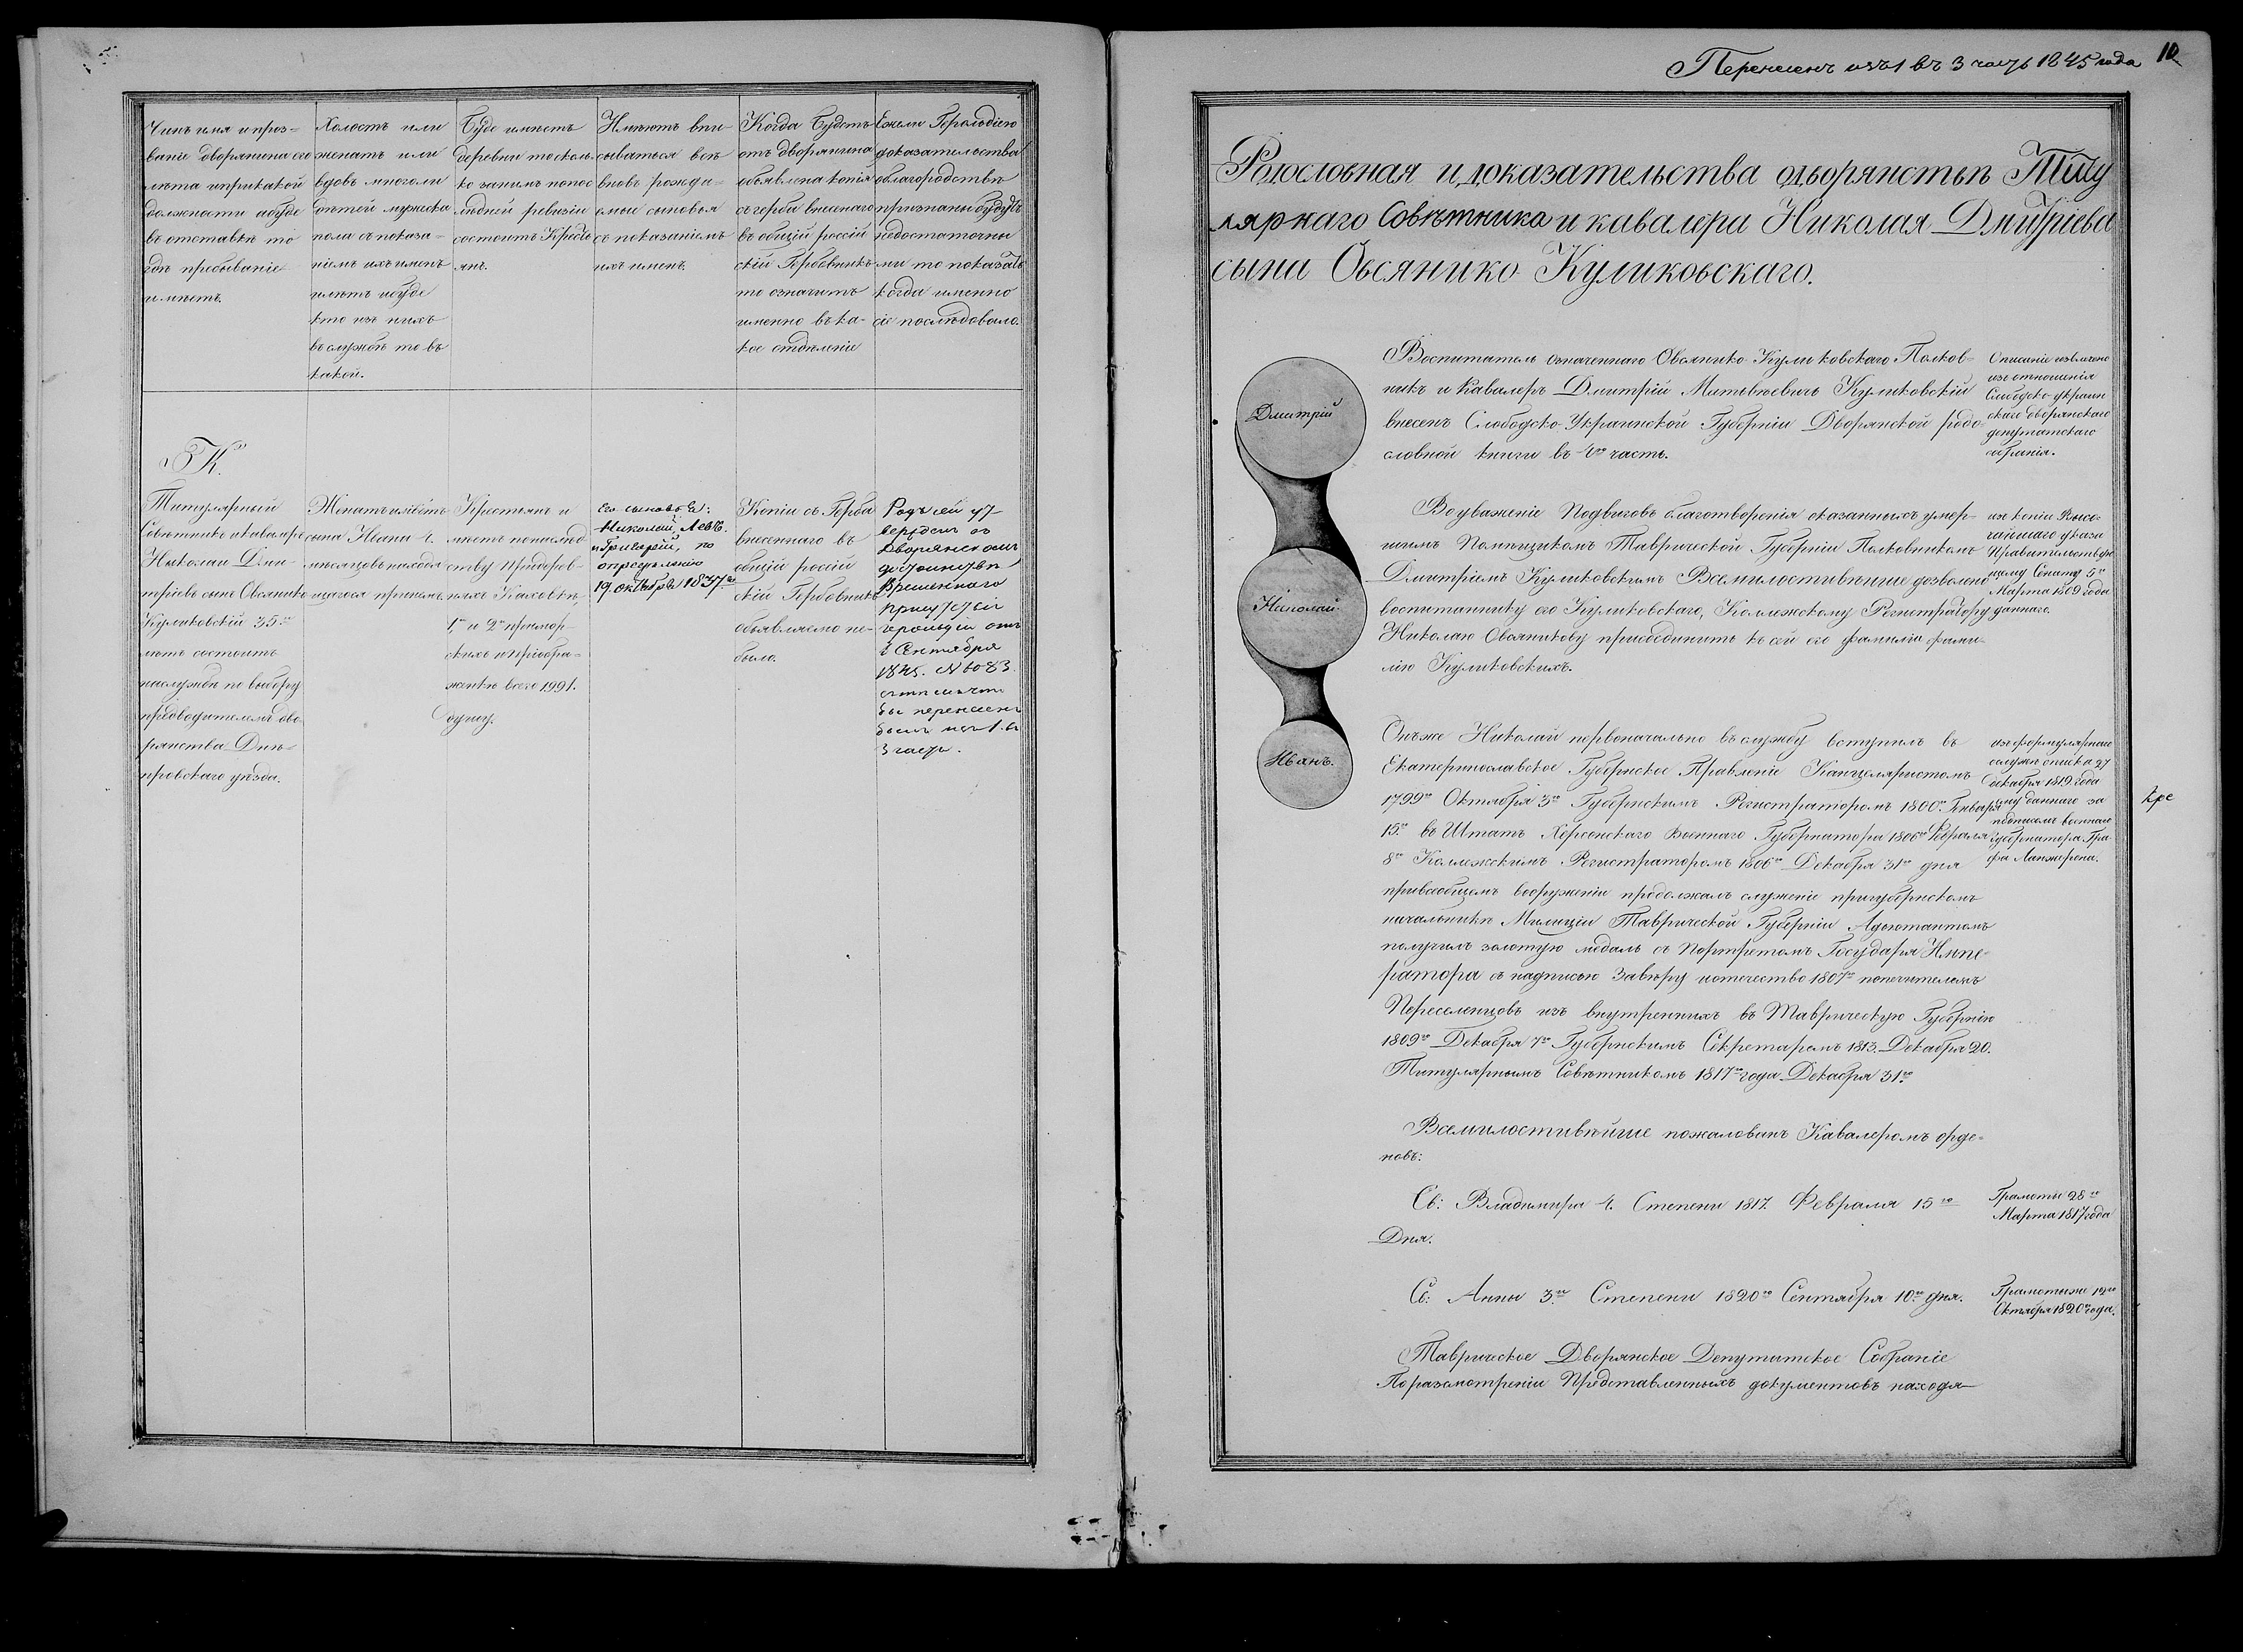 Чинъ имя и проз-
ваніе дворянина его
лѣта и прикакой
должности абуде
въ отставкѣ то
гдѣ пребываніе
имѣетъ.
Холостъ или
женатъ или
вдовъ много ли
дѣтей мужеска
пола съ показа-
ніемъ ихъ именъ
лѣтъ ибуде
кто изъ нихъ
въ службѣ то въ
какой.
Буде имѣетъ
деревни то сколь-
ко за нимъ по пос
лѣдней ревизіи
состоитъ Кресть
янъ.
Имѣютъ впи
сываться всѣ
вновь рожда-
емые сыновья
съ показаніемъ
ихъ именъ.
Когда будетъ
отъ дворянина
объявлена копія
съ герба внесеннаго
въ общій россій
скій Гербовникъ
то означить
именно въ ка-
кое отдѣленіе
Ежели Герольдіею
доказательства
о благородствѣ
признаны будутъ
недостаточны
ми то показать
когда именно
сіе послѣдовало.
К.
Титулярный
Совѣтникъ и кавалеръ
Николай Дми-
тріевъ сынъ Овсянико
Куликовскій 35.
лѣтъ состоитъ
на службѣ по выбору
предводителемъ дво
рянства Днѣ-
провскаго уѣзда.
Женатъ имѣетъ
сына Ивана 4.
мѣсяцевъ находя
щагося при немъ.
Крестьянъ и
мѣетъ по наслѣд
ству при дерев-
няхъ Каховкѣ,
1й и 2й примор-
скихъ и Преобра-
женкѣ всего 1991.
душу.
Его сыновья:
Николай, Левъ.
и Григорій, по
опредѣленію
19. октября 1837 го
Копіи съ Герба
внесеннаго въ
общій россій
скій Гербовникъ
объявляемо не-
было.
Родъ сей ут
вержденъ въ
Дворянскомъ
достоинствѣ
Временнаго
присутствія
герольдіи отъ
Сентября
1845. №
съ тѣмъ что
бы перенесенъ
былъ изъ 1. въ
3 часть.
Перенесенъ изъ 1 въ 3 часть 1845 года
10
Родословная и доказательства одворянствѣ Титу
лярнаго Совѣтника и кавалера Николая Дмитріева
сына Овсянико Куликовскаго.
Дмитрій
Николай
Иванъ.
Воспитатель означеннаго Овсянико Куликовскаго Полков-
никъ и Кавалеръ Дмитрій Матвѣевичъ Куликовскій
внесенъ Слободско-Украинской Губерніи Дворянской родо-
словной книги въ 4ю часть.
Описаніе извлечено
изъ отношенія
Слободско-украин
скаго дворянскаго
депутатскаго
собранія.
Воуваженіе Подвиговъ благотворенія оказанныхъ умер-
шимъ Помѣщикомъ Таврической Губерніи Полковникомъ
Дмитріемъ Куликовскимъ Всемилостивѣйше дозволено
воспитаннику его Куликовскаго, Коллежскому Регистратору
Николаю Овсяникову присоединить къ сей его фамиліи фами-
лію Куликовскихъ.
изъ копіи Высо-
чайшаго указа
Правительствую
щему Сенату 5го
Марта 1809 года
даннаго.
Онъже Николай первоначально въ службу вступилъ въ
Екатеринославское Губернское Правленіе Канцеляристомъ
1799го Октября 3го Губернскимъ Регистраторомъ 1800го Генваря
15го въ Штатъ Херсонскаго военнаго Губернатора 1806го Февраля
8го Коллежскимъ Регистраторомъ 1806го Декабря 31го дня
привсеобщемъ вооруженіи продолжалъ служеніе пригубернскомъ
начальникѣ Милиціи Таврической Губерніи Адъютантомъ
получилъ золотую медаль съ Портретомъ Государя Импе-
ратора съ надписью За вѣру и отечество 1807го попечителемъ
Переселенцовъ изъ внутреннихъ въ Таврическую Губернію
1809го Декабря 7го Губернскимъ Секретаремъ 1813. Декабря 20.
Титулярнымъ Совѣтникомъ 1817го года Декабря 31го
изъ формулярнаго
о службѣ списка 27
Декабря 1819 года
ему даннаго за
подписомъ военнаго
Губернатора Гра-
фа Ланжерона.
Всемилостивѣйше пожалованъ Кавалеромъ орде-
новъ:
Св: Владимира 4. Степени 1817. Февраля 15го
Дня.
Грамоты 28го
Марта 1817 года
Св: Анны 3й Степени 1820го Сентября 10го дня.
Октября 1820го года.
Таврическое Дворянское Депутатское Собраніе
По разсмотреніи Представленныхъ документовъ находя-